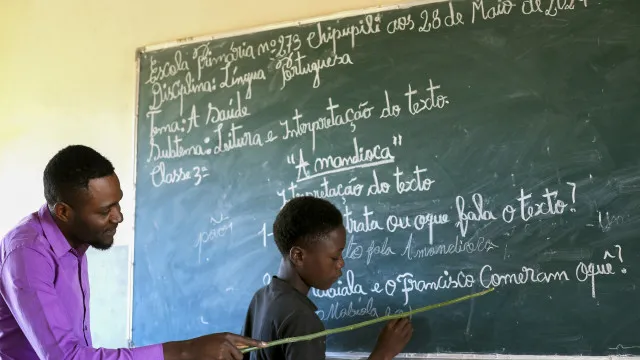 Escola Primária nº 273 Chipupili aos 28 de Maio de 2024
Disciplina: Língua Portuguesa
Tema: A Saúde
Subtema: Leitura e Interpretação do texto.
Classe 3ª
"A mandioca"
Interpretação do texto
trata ou oque fala o texto?
fala
pão
e o Francisco Comeram oquê?